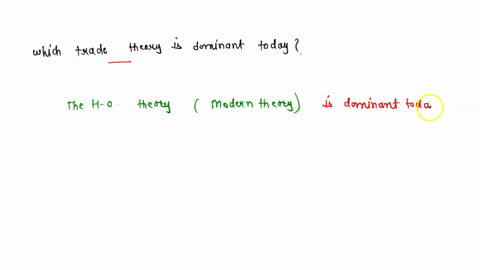 which trade theory is dominant today?
The H-O. theory ( Modern theory) is dominant toda